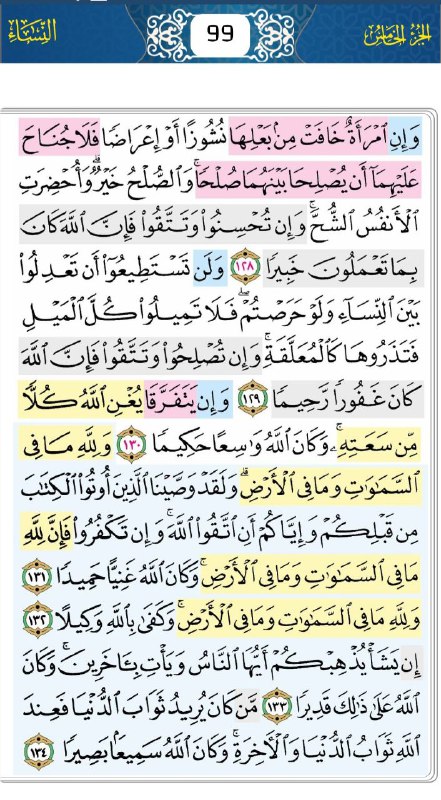 الجزء الخامس
99
النساء
وَإِنِ ٱمْرَأَةٌ خَافَتْ مِنۢ بَعْلِهَا نُشُوزًا أَوْ إِعْرَاضًا فَلَا جُنَاحَ
عَلَيْهِمَآ أَن يُصْلِحَا بَيْنَهُمَا صُلْحًا ۚ وَٱلصُّلْحُ خَيْرٌ ۗ وَأُحْضِرَتِ
ٱلْأَنفُسُ ٱلشُّحَّ ۚ وَإِن تُحْسِنُوا۟ وَتَتَّقُوا۟ فَإِنَّ ٱللَّهَ كَانَ
بِمَا تَعْمَلُونَ خَبِيرًا ١٢٨ وَلَن تَسْتَطِيعُوٓا۟ أَن تَعْدِلُوا۟
بَيْنَ ٱلنِّسَآءِ وَلَوْ حَرَصْتُمْ ۖ فَلَا تَمِيلُوا۟ كُلَّ ٱلْمَيْلِ
فَتَذَرُوهَا كَٱلْمُعَلَّقَةِ ۚ وَإِن تُصْلِحُوا۟ وَتَتَّقُوا۟ فَإِنَّ ٱللَّهَ
كَانَ غَفُورًا رَّحِيمًا ١٢٩ وَإِن يَتَفَرَّقَا يُغْنِ ٱللَّهُ كُلًّا
مِّن سَعَتِهِۦ ۚ وَكَانَ ٱللَّهُ وَٰسِعًا حَكِيمًا ١٣٠ وَلِلَّهِ مَا فِى
ٱلسَّمَٰوَٰتِ وَمَا فِى ٱلْأَرْضِ ۗ وَلَقَدْ وَصَّيْنَا ٱلَّذِينَ أُوتُوا۟ ٱلْكِتَٰبَ
مِن قَبْلِكُمْ وَإِيَّاكُمْ أَنِ ٱتَّقُوا۟ ٱللَّهَ ۚ وَإِن تَكْفُرُوا۟ فَإِنَّ لِلَّهِ
مَا فِى ٱلسَّمَٰوَٰتِ وَمَا فِى ٱلْأَرْضِ ۚ وَكَانَ ٱللَّهُ غَنِيًّا حَمِيدًا ١٣١
وَلِلَّهِ مَا فِى ٱلسَّمَٰوَٰتِ وَمَا فِى ٱلْأَرْضِ ۚ وَكَفَىٰ بِٱللَّهِ وَكِيلًا ١٣٢
إِن يَشَأْ يُذْهِبْكُمْ أَيُّهَا ٱلنَّاسُ وَيَأْتِ بِـَٔاخَرِينَ ۚ وَكَانَ
ٱللَّهُ عَلَىٰ ذَٰلِكَ قَدِيرًا ١٣٣ مَّن كَانَ يُرِيدُ ثَوَابَ ٱلدُّنْيَا فَعِندَ
ٱللَّهِ ثَوَابُ ٱلدُّنْيَا وَٱلْـَٔاخِرَةِ ۚ وَكَانَ ٱللَّهُ سَمِيعًۢا بَصِيرًا ١٣٤